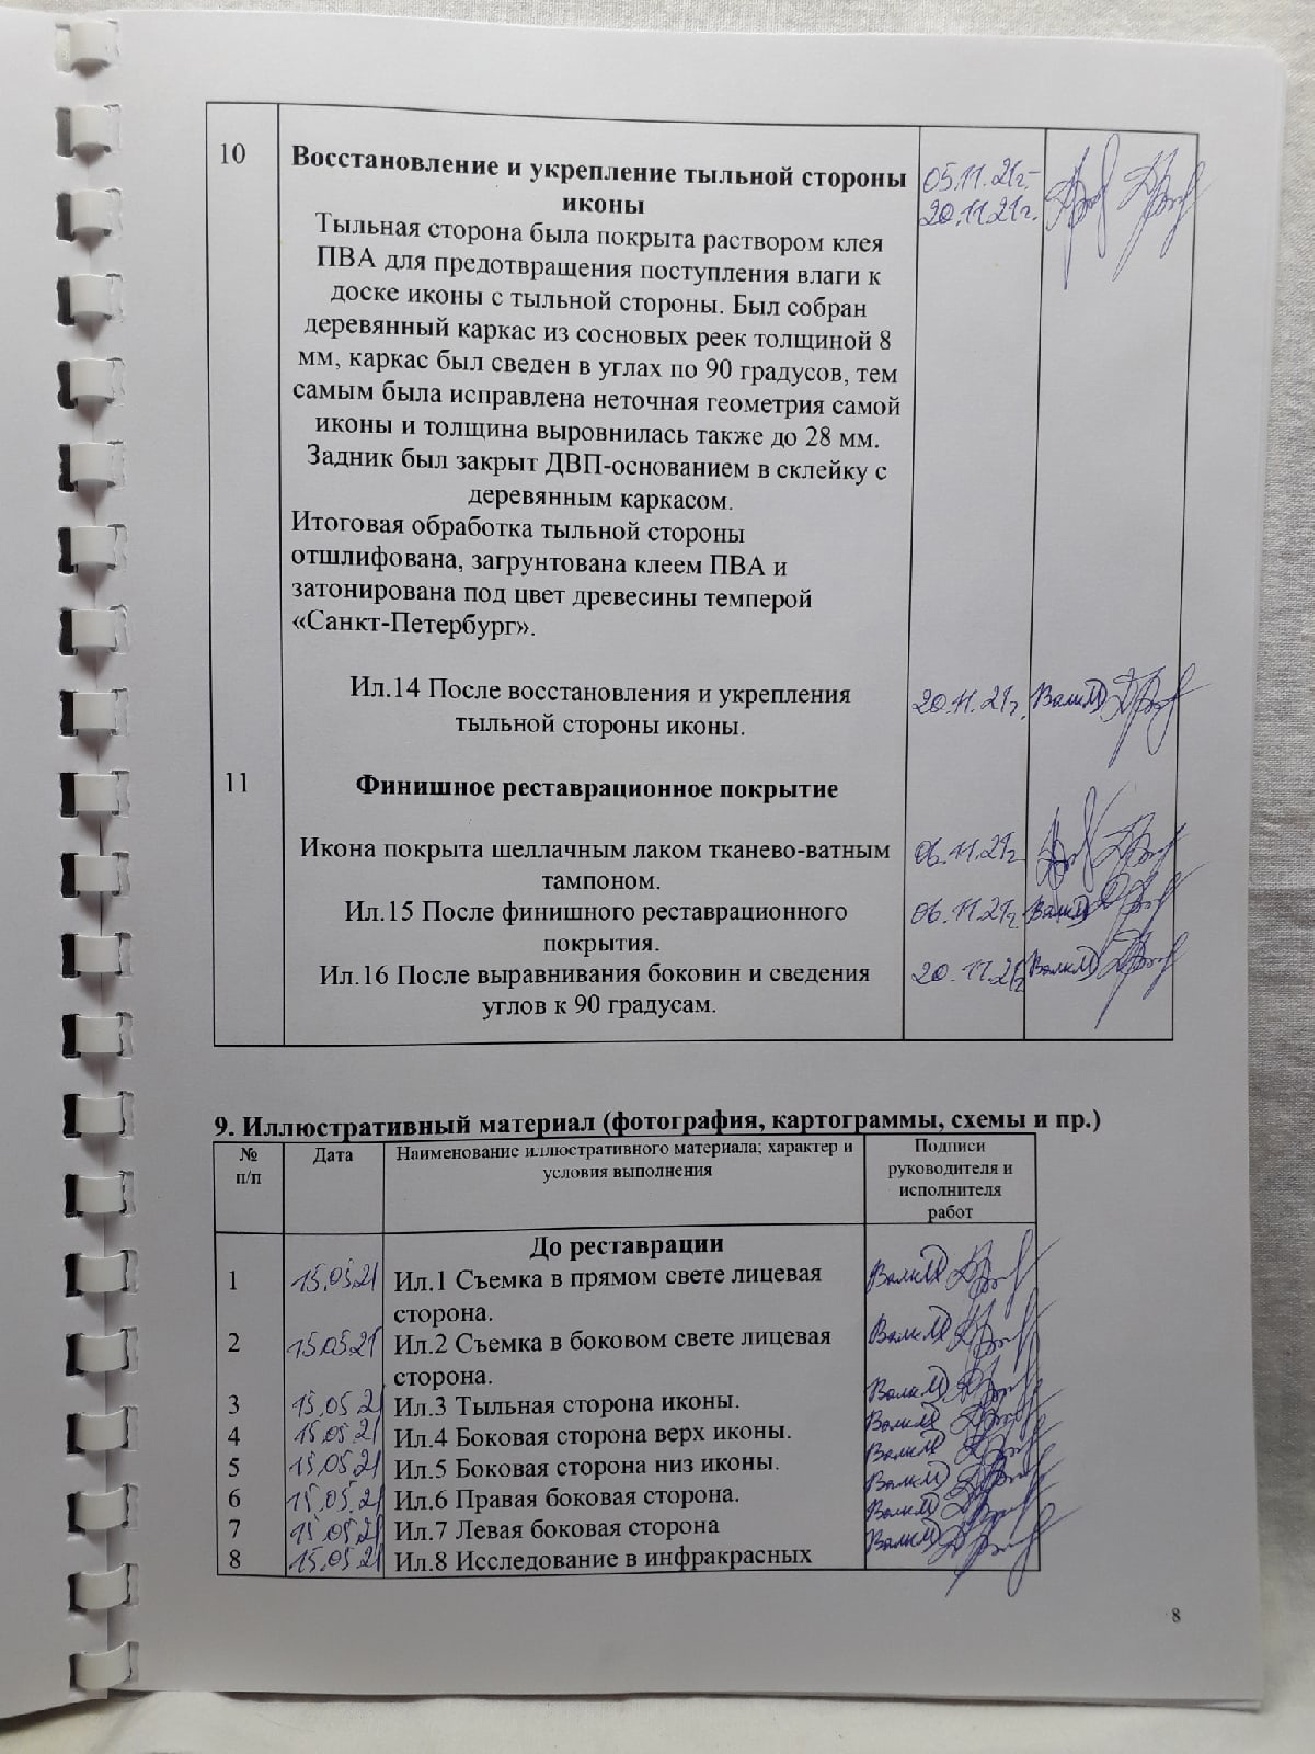 10
Восстановление и укрепление тыльной стороны 05.11.21г.-
иконы 20.11.21г.
Тыльная сторона была покрыта раствором клея
ПВА для предотвращения поступления влаги к
доске иконы с тыльной стороны. Был собран
деревянный каркас из сосновых реек толщиной 8
мм, каркас был сведен в углах по 90 градусов, тем
самым была исправлена неточная геометрия самой
иконы и толщина выровнилась также до 28 мм.
Задник был закрыт ДВП-основанием в склейку с
деревянным каркасом.
Итоговая обработка тыльной стороны
отшлифована, загрунтована клеем ПВА и
затонирована под цвет древесины темперой
«Санкт-Петербург».
Ил.14 После восстановления и укрепления 20.11.21г.
тыльной стороны иконы.
11 Финишное реставрационное покрытие
Икона покрыта шеллачным лаком тканево-ватным 06.11.21г
тампоном.
Ил.15 После финишного реставрационного 06.11.21г.
покрытия.
Ил.16 После выравнивания боковин и сведения 20.11.21г
углов к 90 градусам.
9. Иллюстративный материал (фотография, картограммы, схемы и пр.)
№ Дата Наименование иллюстративного материала; характер и Подписи
п/п условия выполнения руководителя и
исполнителя
работ
До реставрации
1 15.05.21 Ил.1 Съемка в прямом свете лицевая
сторона.
2 15.05.21 Ил.2 Съемка в боковом свете лицевая
сторона.
3 15.05.21 Ил.3 Тыльная сторона иконы.
4 15.05.21 Ил.4 Боковая сторона верх иконы.
5 15.05.21 Ил.5 Боковая сторона низ иконы.
6 15.05.21 Ил.6 Правая боковая сторона.
7 15.05.21 Ил.7 Левая боковая сторона
8 15.05.21 Ил.8 Исследование в инфракрасных
8